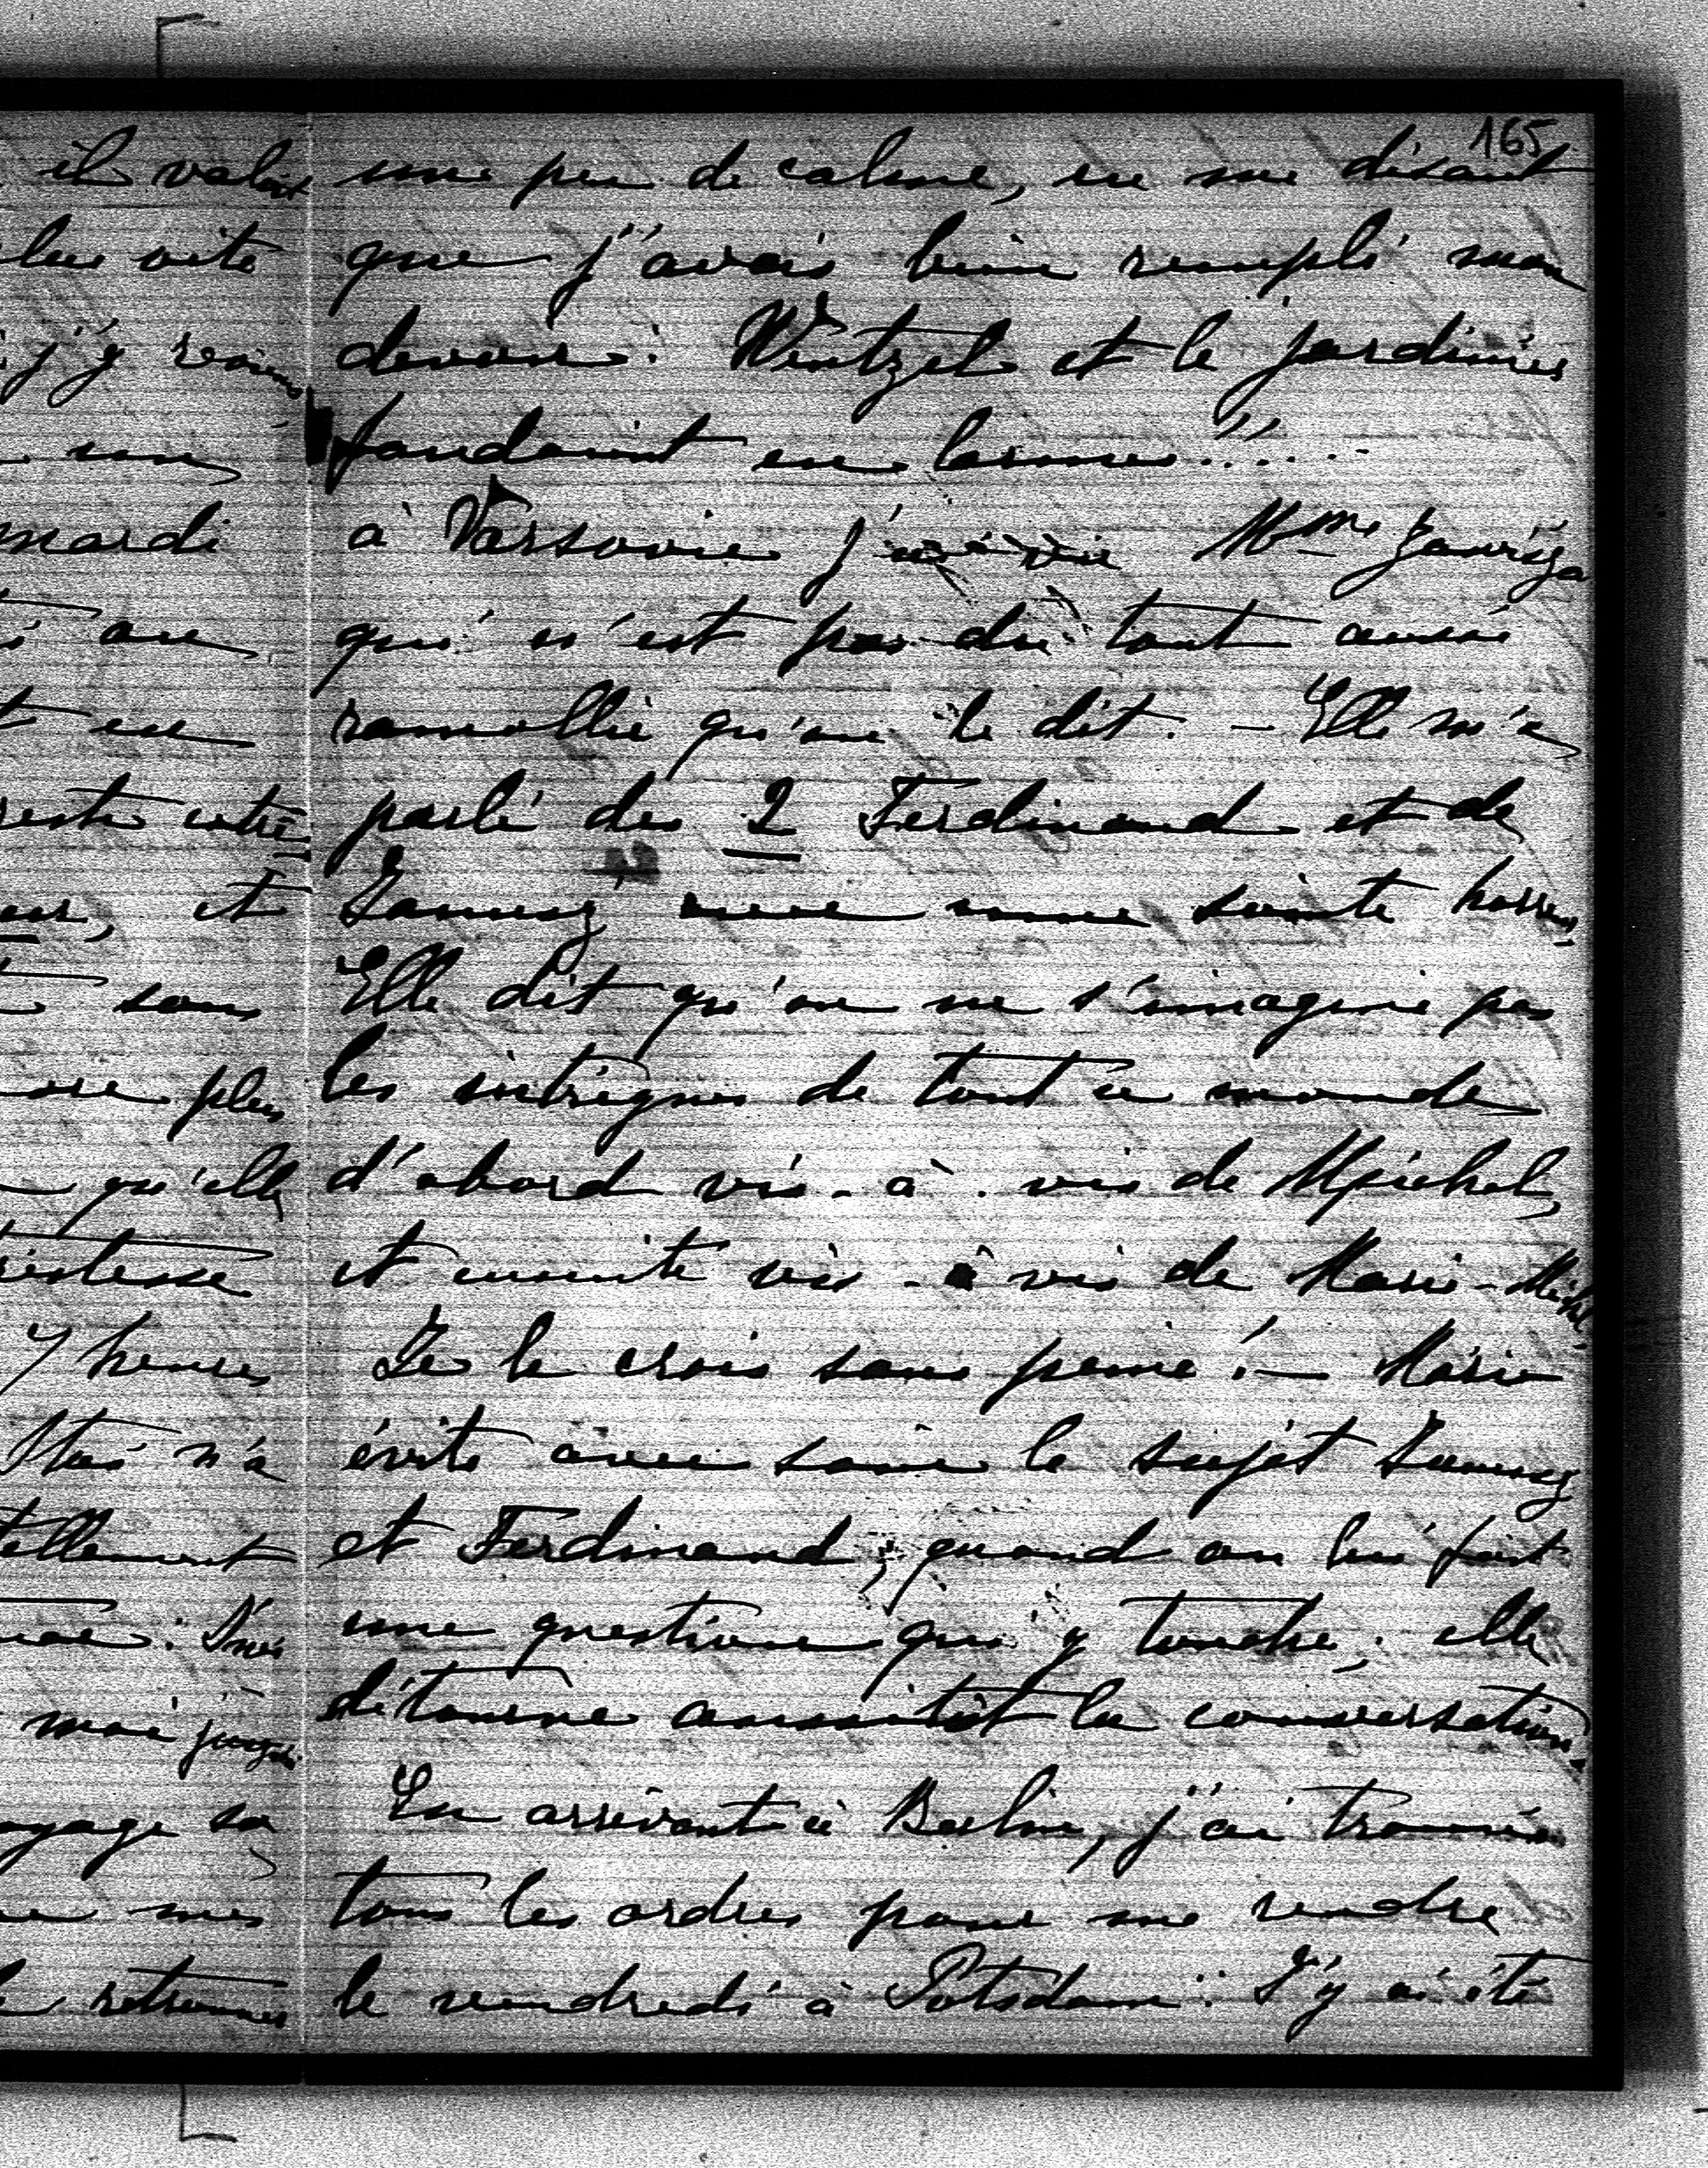 165
il valait
plus vite
j'y reviens
un
mardi
au
en
reste entre
et
sans
plus
qu'elle
tristesse
7 heures
Stas n'a
tellement
moi jusqu'
voyage sa
mes
retrouver
une peu de calme, en me disant
que j'avais bien rempli mon
devoir. Wentzel et le jardinier
fondaient en larmes!!....
à Varsovie j'ai vu Mme
qui n'est pas du tout aussi
ramollie qu'on le dit. — Elle m'a
parlé des 2 Ferdinand et de
Janusz avec une sainte horreur,
Elle dit qu'on ne s'imagine pas
les intrigues de tout ce monde
d'abord vis-à-vis de Michel,
et ensuite vis-à vis de Marie-Michel
Je le crois sans peine! — Marie
évite avec soin le sujet Janusz
et Ferdinand; quand on lui fait
une question qui y touche, elle
détourne aussitôt la conversation.
En arrivant à Berlin, j'ai trouvé
tous les ordres pour me rendre
le vendredi à Potsdam. J'y ai été